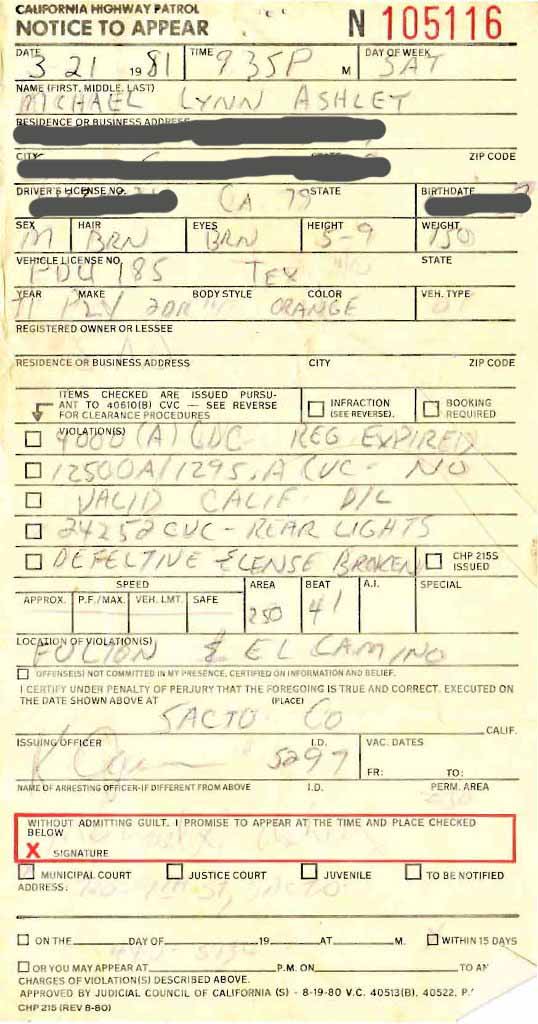 CALIFORNIA HIGHWAY PATROL
NOTICE TO APPEAR
N 105116
DATE TIME DAY OF WEEK
3 21 1981 935P M SAT
NAME (FIRST, MIDDLE, LAST)
MICHAEL LYNN ASHLEY
RESIDENCE OR BUSINESS ADDRESS
CITY ZIP CODE
DRIVER'S LICENSE NO. STATE BIRTHDATE
CA 79
SEX HAIR EYES HEIGHT WEIGHT
M BRN BRN 5-9 150
VEHICLE LICENSE NO. STATE
PDU 185 TEX
YEAR MAKE BODY STYLE COLOR VEH. TYPE
71 PLY 2DR ORANGE
REGISTERED OWNER OR LESSEE
RESIDENCE OR BUSINESS ADDRESS CITY ZIP CODE
ITEMS CHECKED ARE ISSUED PURSU-
ANT TO 40610(B) CVC — SEE REVERSE
FOR CLEARANCE PROCEDURES
INFRACTION
(SEE REVERSE).
BOOKING
REQUIRED
VIOLATION(S)
4000 (A) CVC REG EXPIRED
12500A/1295.A CVC - NO
VALID CALIF D/L
24252 CVC - REAR LIGHTS
DEFECTIVE & LENSE BROKEN
CHP 215S
ISSUED
SPEED AREA BEAT A.I. SPECIAL
APPROX. P.F./MAX. VEH. LMT. SAFE
250 41
LOCATION OF VIOLATION(S)
FULTON & EL CAMINO
OFFENSE(S) NOT COMMITTED IN MY PRESENCE, CERTIFIED ON INFORMATION AND BELIEF.
I CERTIFY UNDER PENALTY OF PERJURY THAT THE FOREGOING IS TRUE AND CORRECT. EXECUTED ON
THE DATE SHOWN ABOVE AT (PLACE)
SACTO CO
CALIF.
ISSUING OFFICER I.D. VAC. DATES
5297
FR: TO:
NAME OF ARRESTING OFFICER-IF DIFFERENT FROM ABOVE I.D. PERM. AREA
WITHOUT ADMITTING GUILT. I PROMISE TO APPEAR AT THE TIME AND PLACE CHECKED
BELOW
X SIGNATURE
MUNICIPAL COURT JUSTICE COURT JUVENILE TO BE NOTIFIED
ADDRESS:
ON THE DAY OF 19 AT M. WITHIN 15 DAYS
OR YOU MAY APPEAR AT P.M. ON TO
CHARGES OF VIOLATION(S) DESCRIBED ABOVE.
APPROVED BY JUDICIAL COUNCIL OF CALIFORNIA (S) - 8-19-80 V.C. 40513(B). 40522.
CHP 215 (REV 8-80)